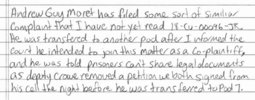 Andrew Guy Moret has filed some sort of similiar
Complaint that I have not yet read 18-CU-00096-JR.
He was transfered to another pod after I informed the
court he intended to join this matter as a co-plaintiff,
and he was told prisoners can't share legal documents
as deputy Crowe removed a petition we both signed from
his cell the night before he was transferred to Pod 7.